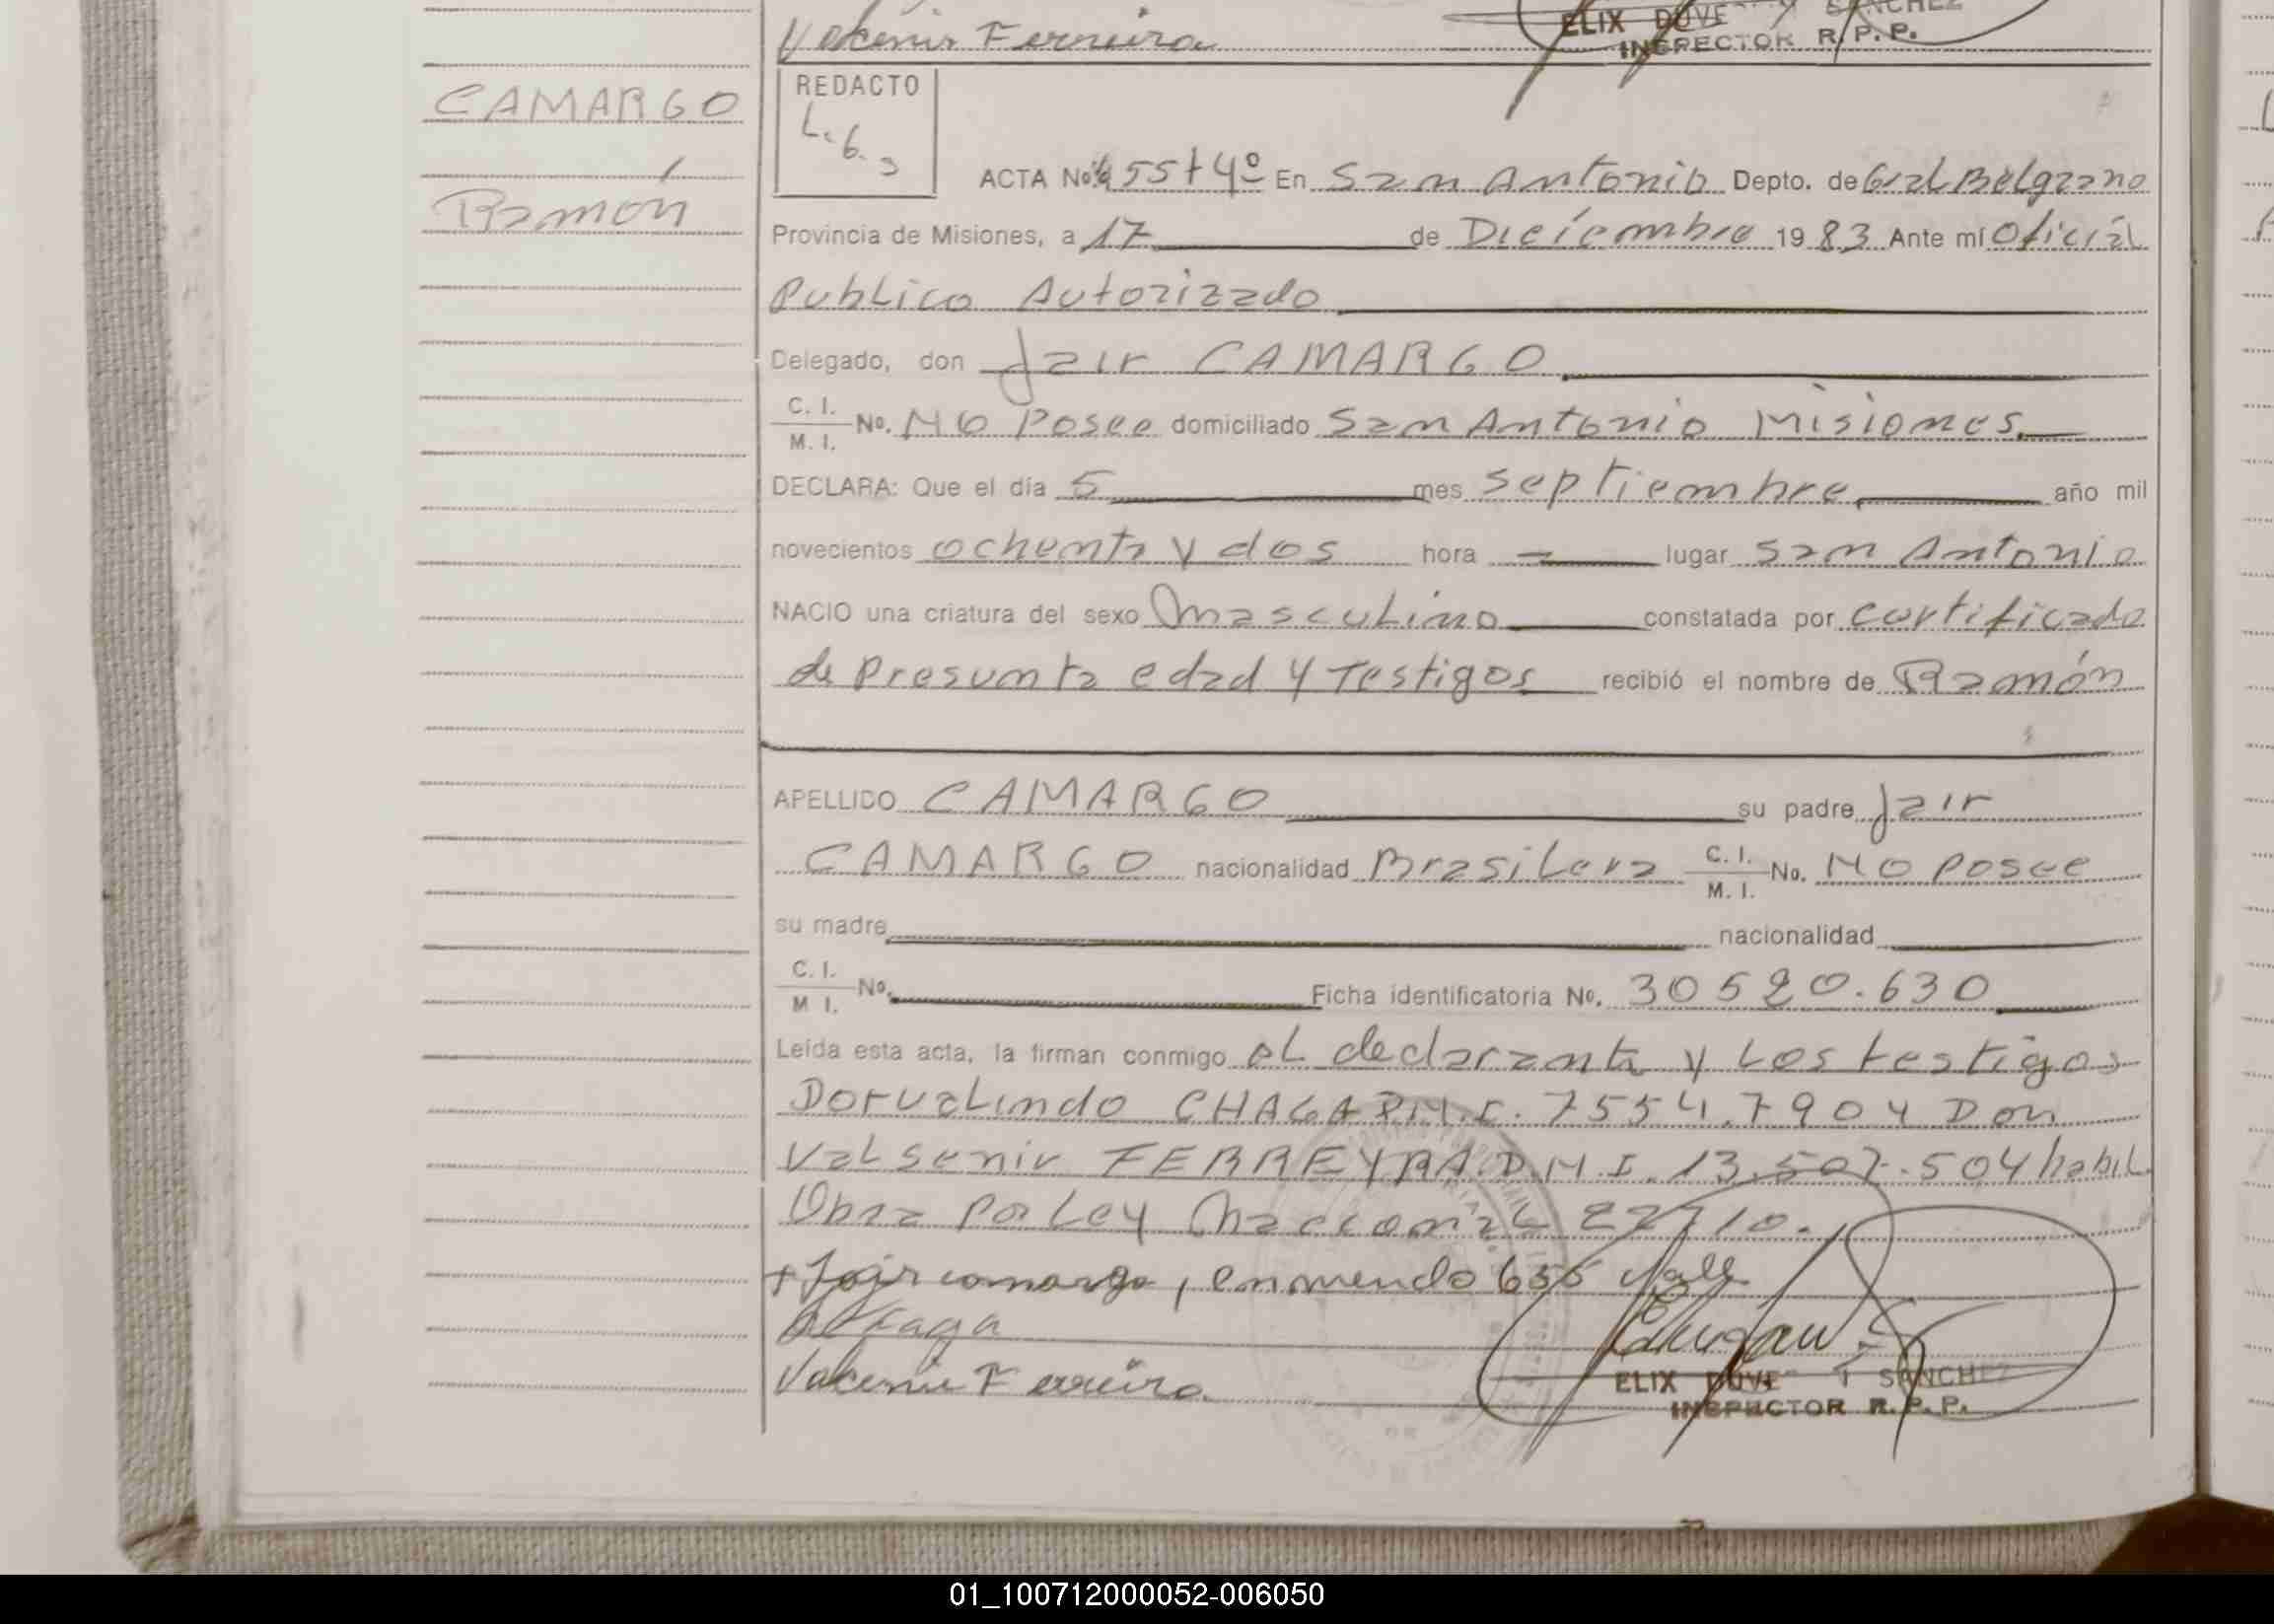 Ferreira
ELIX DUVE SANCHEZ
INSPECTOR R.P.P.
CAMARGO
Ramón
REDACTO
L.G.
ACTA No. 55 t 4º En San Antonio Depto. de Gral Belgrano
Provincia de Misiones, a 17 de Diciembre 19 83 Ante mí Oficial
Publico Autorizado
Delegado, don Jair CAMARGO
C. I. / M. I. No. No Posee domiciliado San Antonio Misiones.
DECLARA: Que el día 5 mes septiembre año mil
novecientos ochenta y dos hora — lugar San Antonio
NACIO una criatura del sexo masculino constatada por certificado
de Presunta edad y Testigos recibió el nombre de Ramón
APELLIDO CAMARGO su padre Jair
CAMARGO nacionalidad Brasilera C. I. / M. I. No. No Posee
su madre nacionalidad
C. I. / M I. No. Ficha identificatoria No. 30520.630
Leída esta acta, la firman conmigo el declarante y Los testigos
Dorvalindo CHAGA D.M.I. 7554.7904 Don
Valsenir FERREYRA.D.M.I. 13.507.504 habil
Obra Por Ley Nacional 22710.
+ Jair camargo, enmendo 655 Vale
Ferreira
ELIX DUVE SANCHEZ
INSPECTOR R.P.P.
01_100712000052-006050